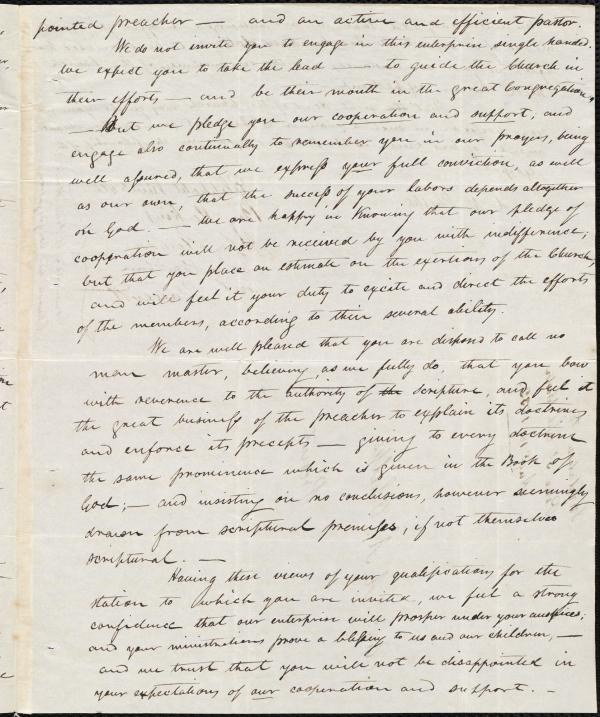 pointed preacher — and an active and efficient pastor.
We do not invite you to engage in this enterprise single handed.
we expect you to take the lead — to guide the Church in
their efforts — and be their mouth in the great Congregation,
— But we pledge you our cooperation and support, and
engage also continually to remember you in our prayers, being
well assured, that we express your full conviction, as well
as our own, that the success of your labors depends altogether
on God. — We are happy in knowing that our pledge of
cooperation will not be received by you with indifference;
but that you place an estimate on the exertions of the Church,
and will feel it your duty to excite and direct the efforts
of the members, according to their several ability.
We are well pleased that you are disposed to call no
man master, believing, as we fully do, that you bow
with reverence to the authority of the scripture, and feel it
the great business of the preacher to explain its doctrines
and enforce its precepts — giving to every doctrine
the same prominence which is given in the Book of
God; — and insisting on no conclusions, however seemingly
drawn from scriptural premises, if not themselves
scriptural. —
Having these views of your qualifications for the
station to which you are invited, we feel a strong
confidence that our enterprise will prosper under your auspices;
and your ministrations prove a blessing to us and our children, —
and we trust that you will not be disappointed in
your expectations of our cooperation and support. —